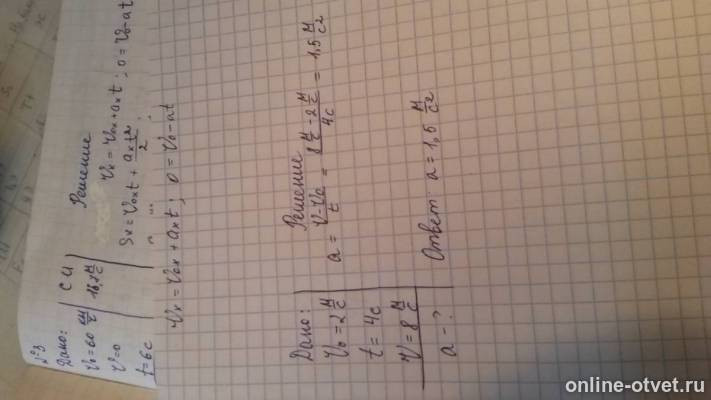 №3
Дано:
V₀ = 60 км/ч
V = 0
t = 6с
СИ
16,7 м/с
Решение
Vx = V₀x + axt; 0 = V₀ - at
Sx = V₀xt + axt²/2
Vx = V₀x + axt; 0 = V₀ - at
Дано:
V₀ = 2 м/с
t = 4с
V = 8 м/с
a - ?
Решение
a = V-V₀/t = 8 м/с - 2 м/с/4с = 1,5 м/с²
Ответ: a = 1,5 м/с²
online-otvet.ru